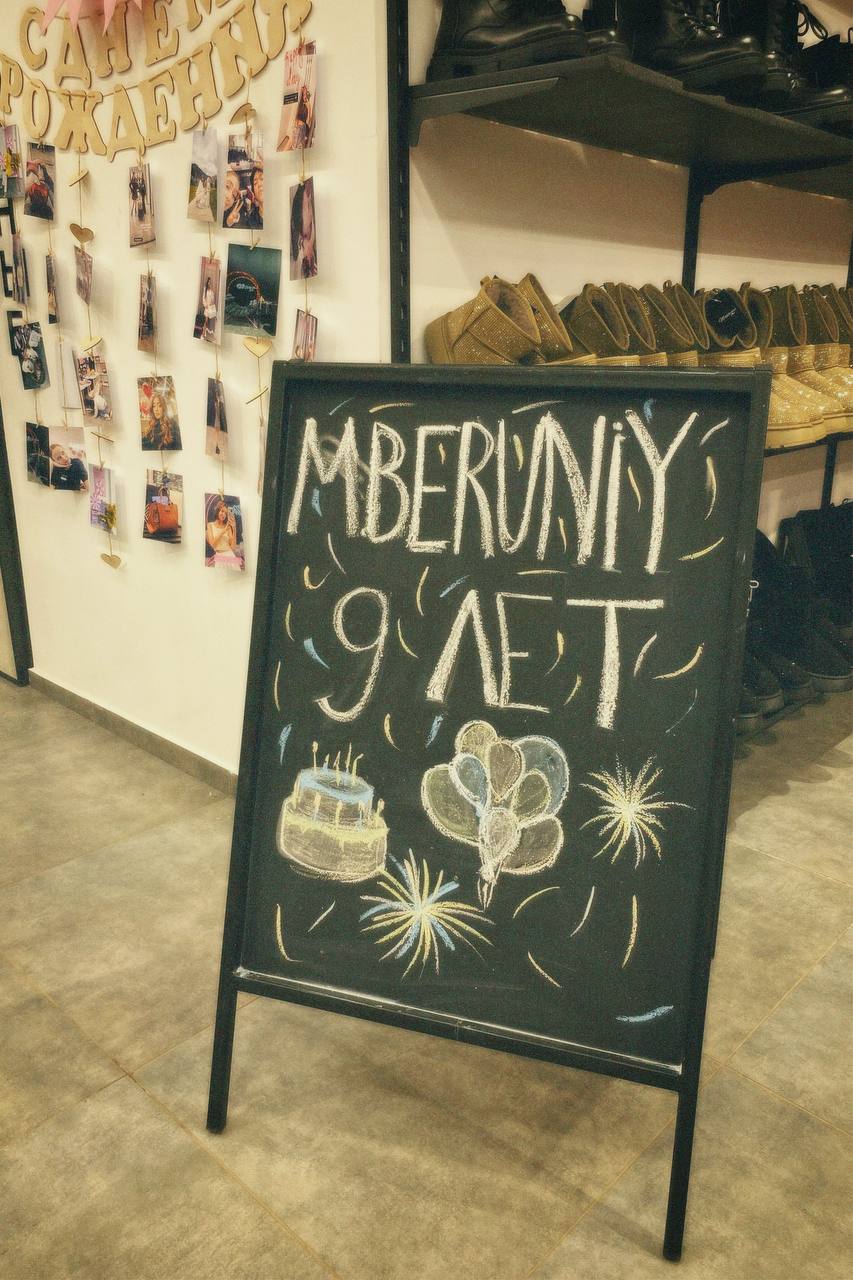 С ДНЕМ
РОЖДЕНИЯ
MBERUNiY
9 ЛЕТ